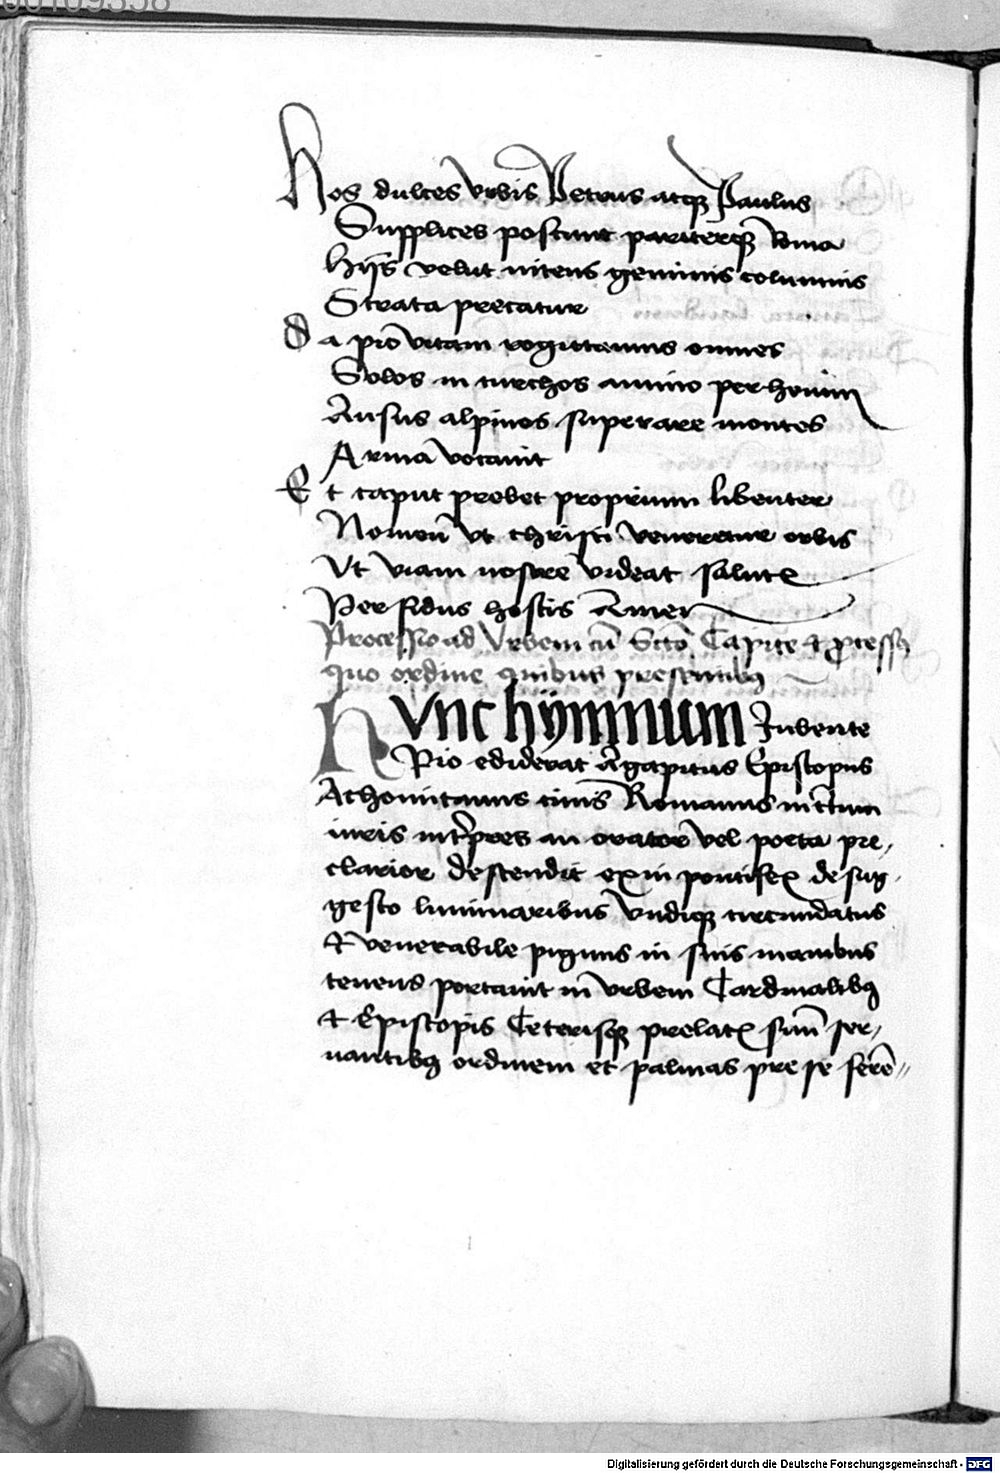 00109358
Hos dulces vrbis Petrus atq₃ Paulus
Supplices poscunt pariterq₃ Roma
hijs velut nitens geminis columnis
Strata precatur
Da pio vitam rogittamus omnes
Solos in turchos animo perhenni
Ausus alpinos superare montes
Arma vocauit
Et caput prebet proprium libenter
Nomen vt christi veneretur orbis
Vt viam nostre videat salutꝭ
Perfidus hostis Amen
Processio ad Vrbem cū Sctō Capite ⁊ ꝓcessꝰ
quo ordine quibus presentibꝰ
HVnc hijmnum Iubente
Pio ediderat Agapitus Episcopus
Achonitanus ciuis Romanus
iuris intꝑpres an orator vel poeta pre,
clarior descendit exin pontifex de sug
gesto luminaribus vndiq₃ circundatus
Et venerabile pignus in suis manibus
tenens portauit in vrbem Cardinalibꝰ
et Episcopis Ceterisq₃ prelatꝭ suū ser,
uantibꝰ ordinem et palmas pre se ferē
Digitalisierung gefördert durch die Deutsche Forschungsgemeinschaft - DFG